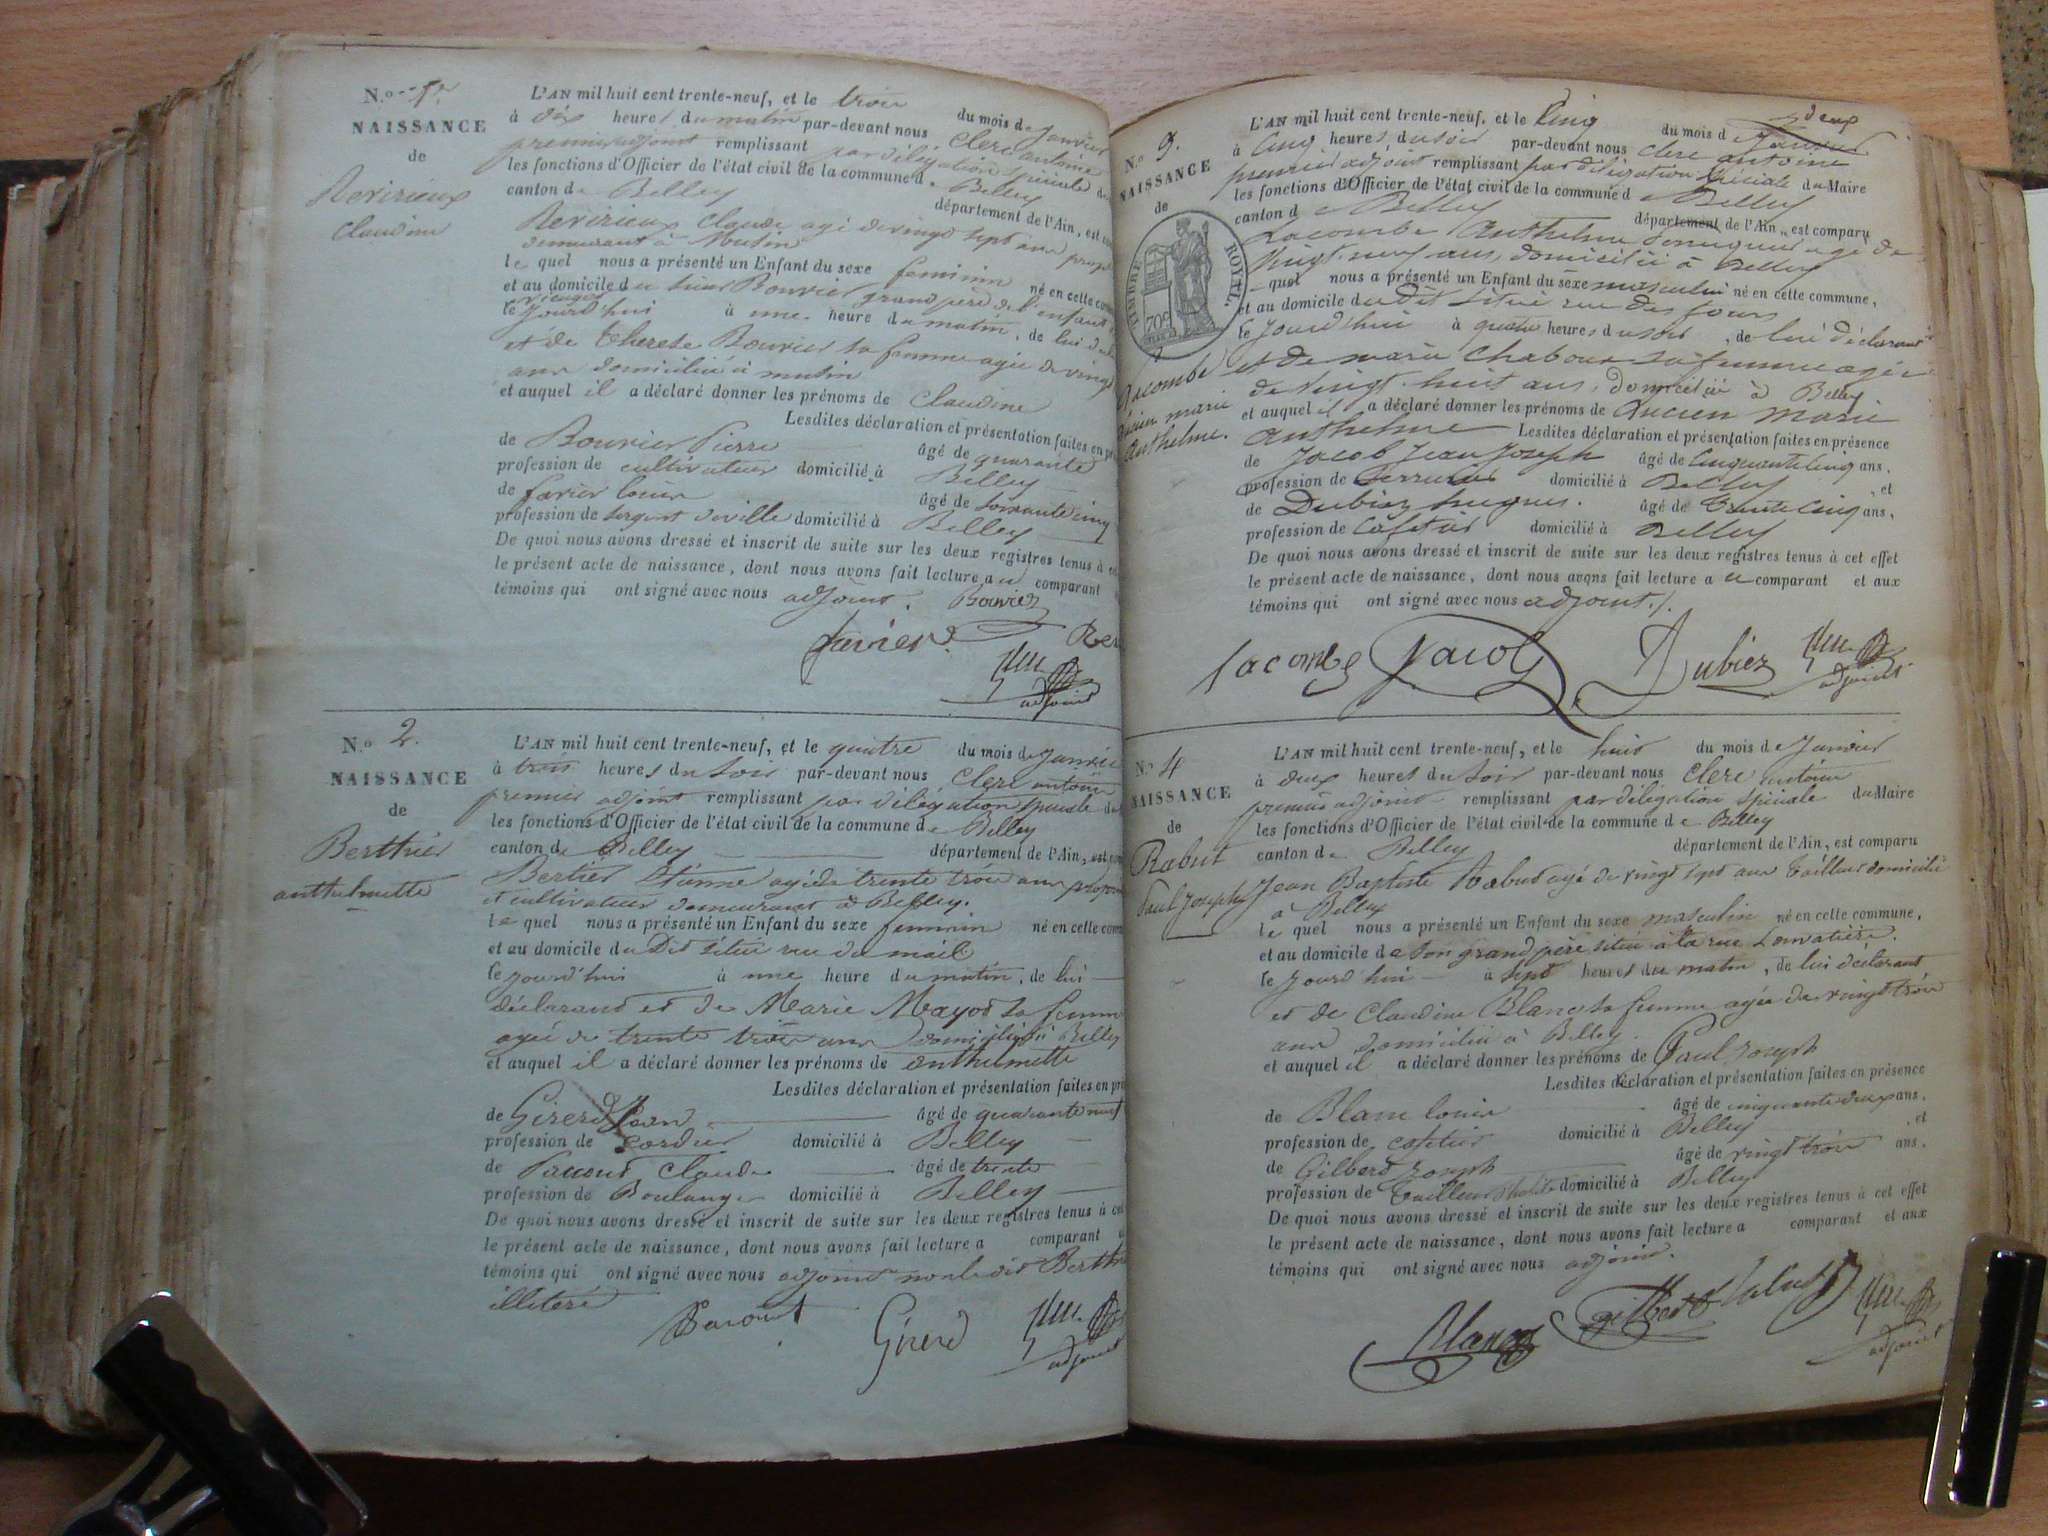 N.o 1er
NAISSANCE
de
Revirieux
Claudine
L'AN mil huit cent trente-neuf, et le trois du mois de Janvier
à dix heures du matin par-devant nous Clerc antoine
premier adjoint remplissant par délégation spéciale du
les fonctions d'Officier de l'état civil de la commune de Belley
canton de Belley département de l'Ain, est
Revirieux Claude agé de vingt sept ans
demeurant à Musin
le quel nous a présenté un Enfant du sexe feminin né en cette
et au domicile du sieur Bouvier grand père de l'enfant
le jourd'hui à une heure du matin, de lui
et de Therese Bouvier sa femme agée de vingt
ans domiciliée à musin
et auquel il a déclaré donner les prénoms de Claudine
Lesdites déclaration et présentation faites en
de Bouvier Pierre âgé de quarante
profession de cultivateur domicilié à Belley
de favier louis âgé de soixante cinq
profession de sergent de ville domicilié à Belley
De quoi nous avons dressé et inscrit de suite sur les deux registres tenus à
le présent acte de naissance, dont nous avons fait lecture au comparant
témoins qui ont signé avec nous adjoint. Bouvier
favier Rev
adjoint
N.o 2.
NAISSANCE
de
Berthier
anthelmette
L'AN mil huit cent trente-neuf, et le quatre du mois de Janvier
à trois heures du soir par-devant nous Clerc antoine
premier adjoint remplissant par délégation speciale du
les fonctions d'Officier de l'état civil de la commune de Belley
canton de Belley département de l'Ain, est
Bertier Etienne agé de trente trois ans
et cultivateur demeurant à Belley.
le quel nous a présenté un Enfant du sexe feminin né en cette
et au domicile du Dit situé rue du mail
le jourd'hui à une heure du matin, de lui
déclarant et de Marie Mayot sa femme
agée de trente trois ans domiciliée à Belley
et auquel il a déclaré donner les prénoms de anthelmette
Lesdites déclaration et présentation faites en
de Girerd Jean âgé de quarante neuf
profession de Cordier domicilié à Belley
de Pacout Claude âgé de trente
profession de Boulanger domicilié à Belley
De quoi nous avons dressé et inscrit de suite sur les deux registres tenus à cet
le présent acte de naissance, dont nous avons fait lecture a comparant
témoins qui ont signé avec nous adjoint non le dit Berthier
illiteré
Pacout Girerd
adjoint
N.o 3.
NAISSANCE
de
TIMBRE ROYAL
70c
Lacombe
Lucien marie
Anthelme.
deux
L'AN mil huit cent trente-neuf, et le Cinq du mois de Janvier
à Cinq heures du soir par-devant nous clerc antoine
premier adjoint remplissant par délégation spéciale du Maire
les fonctions d'Officier de l'état civil de la commune de Belley
canton de Belley département de l'Ain, est comparu
Lacombe Anthelme agé de
Vingt neuf ans, domicilié à Belley
quel nous a présenté un Enfant du sexe masculin né en cette commune,
et au domicile du dit situé rue des fours
le jourd'hui à quatre heures du soir, de lui déclarant
et de marie Chaboux sa femme agée
de Vingt-huit ans, domiciliée à Belley
et auquel il a déclaré donner les prénoms de Lucien marie
anthelme Lesdites déclaration et présentation faites en présence
de Jacob Jean Joseph âgé de Cinquante cinq ans,
profession de Serrurier domicilié à Belley , et
de Dubiez hugues. âgé de trente cinq ans,
profession de Cafetier domicilié à Belley
De quoi nous avons dressé et inscrit de suite sur les deux registres tenus à cet effet
le présent acte de naissance, dont nous avons fait lecture au comparant et aux
témoins qui ont signé avec nous adjoint./.
Lacombe Jacob Dubiez
adjoint
N.o 4
NAISSANCE
de
Rabut
Paul Joseph
L'AN mil huit cent trente-neuf, et le huit du mois de Janvier
à deux heures du soir par-devant nous Clerc antoine
premier adjoint remplissant par délégation spéciale du Maire
les fonctions d'Officier de l'état civil de la commune de Belley
canton de Belley département de l'Ain, est comparu
Jean Baptiste Rabut agé de vingt sept ans tailleur domicilié
à Belley
le quel nous a présenté un Enfant du sexe masculin né en cette commune,
et au domicile de son grand père situé à la rue Louvatière.
le jourd'hui à sept heures du matin, de lui déclarant
et de Claudine Blanc sa femme agée de vingt trois
ans domiciliée à Belley
et auquel il a déclaré donner les prénoms de Paul Joseph
Lesdites déclaration et présentation faites en présence
de Blanc louis âgé de cinquante deux ans,
profession de cafetier domicilié à Belley , et
de Gilbert Joseph âgé de vingt trois ans.
profession de Tailleur d'habits domicilié à Belley
De quoi nous avons dressé et inscrit de suite sur les deux registres tenus à cet effet
le présent acte de naissance, dont nous avons fait lecture a comparant et aux
témoins qui ont signé avec nous adjoint.
Blanc Gilbert Rabut
adjoint